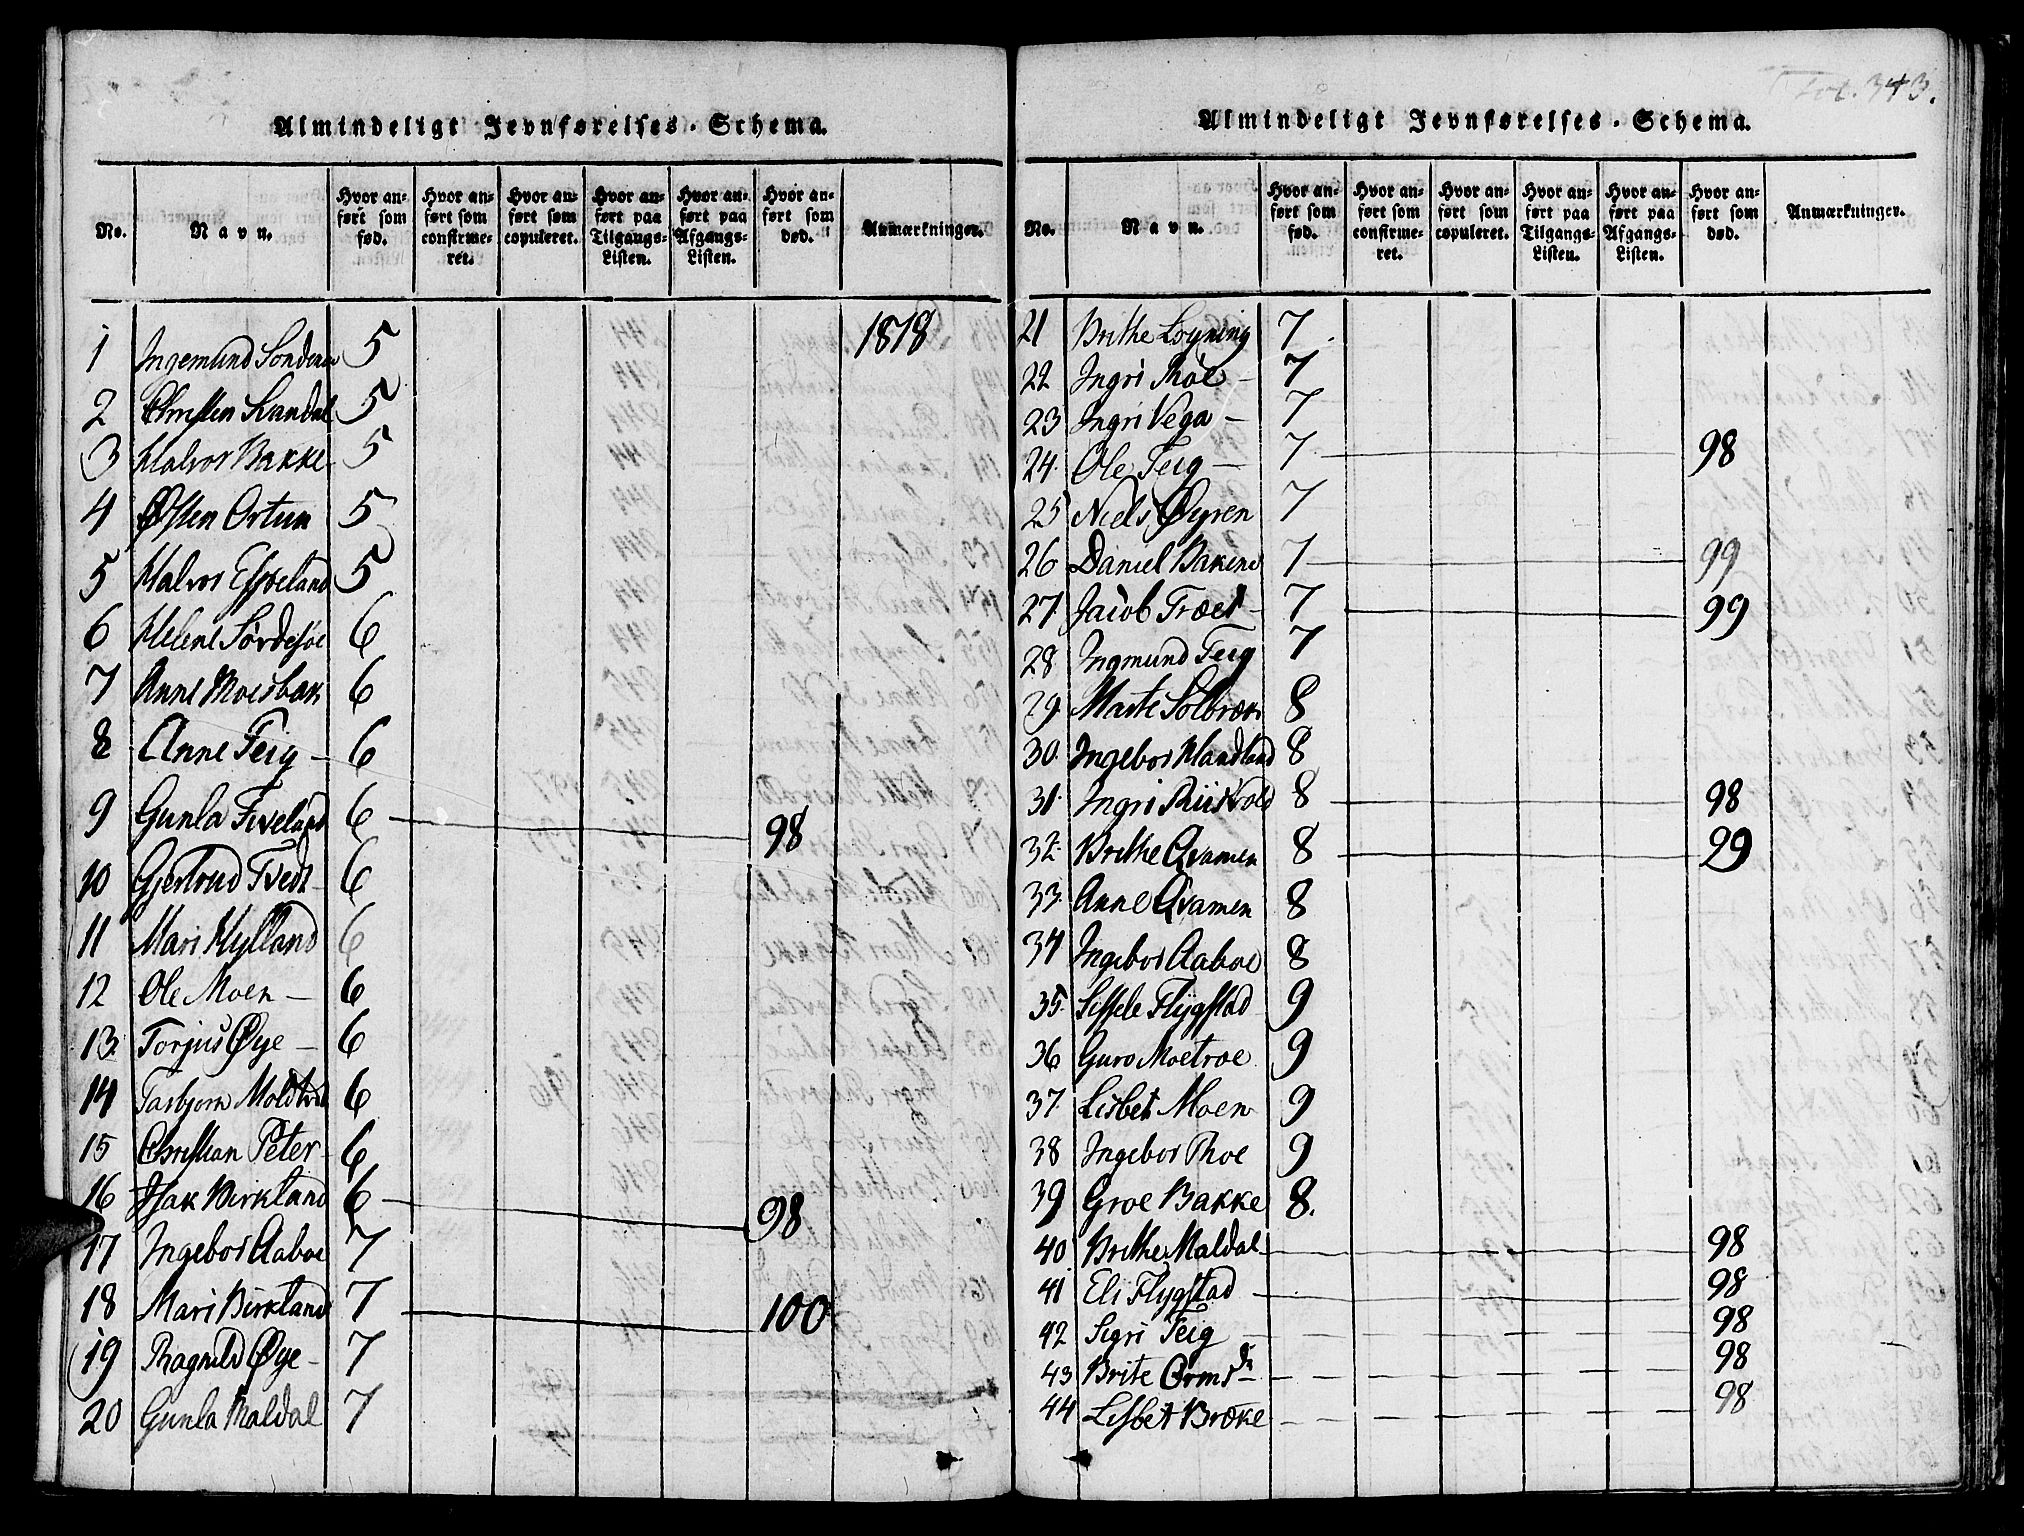 Almindeligt Jevnførelses-Schema.
No. Navn. Hvor anført som fød. Hvor anført som confirmeret. Hvor anført som copuleret. Hvor anført paa Tilgangs-Listen. Hvor anført paa Afgangs-Listen. Hvor anført som død. Anmærkninger.
1 Ingemund 5 1818
2 Christen 5
3 Halvor Bakke 5
4 Østen Ortun 5
5 Halvor Espeland 5
6 Helene 6
7 Anne Moesbak 6
8 Anne Feig — 6
9 Gunla Fiveland 6 98
10 Gjertrud Tvedt 6
11 Mari Hylland 6
12 Ole Moen — 6
13 Torjus Øye — 6
14 Tarbjorn 6
15 Christian Peter 6
16 Isak Birkland 6 98
17 Ingebor Aaboe 7
18 Mari Birkland 7 100
19 Ragnild Øye — 7
20 Gunla Maldal 7
Fol. 343.
Almindeligt Jevnførelses-Schema.
No. Navn. Hvor anført som fød. Hvor anført som confirmeret. Hvor anført som copuleret. Hvor anført paa Tilgangs-Listen. Hvor anført paa Afgangs-Listen. Hvor anført som død. Anmærkninger.
21 Brithe Loyning 7
22 Ingri Roe — 7
23 Ingri Vega — 7
24 Ole Feig — 7 98
25 Niels Øyren 7
26 Daniel 7 99
27 Jacob 7 99
28 Ingmund Feig 7
29 Marte 8
30 Ingebor Handland 8
31 Ingri Riisvold 8 98
32 Brithe Qvamen 8 99
33 Anne Qvamen 8
34 Ingebor Aaboe 8
35 Sissele Flygstad 9
36 Guro Moetroe 9
37 Lisbet Moen 9
38 Ingebor Roe 9
39 Groe Bakke 8.
40 Brithe Maldal 98
41 Eli Flygstad 98
42 Sigri Feig 98
43 Brite 98
44 Lisbet Bræke 98